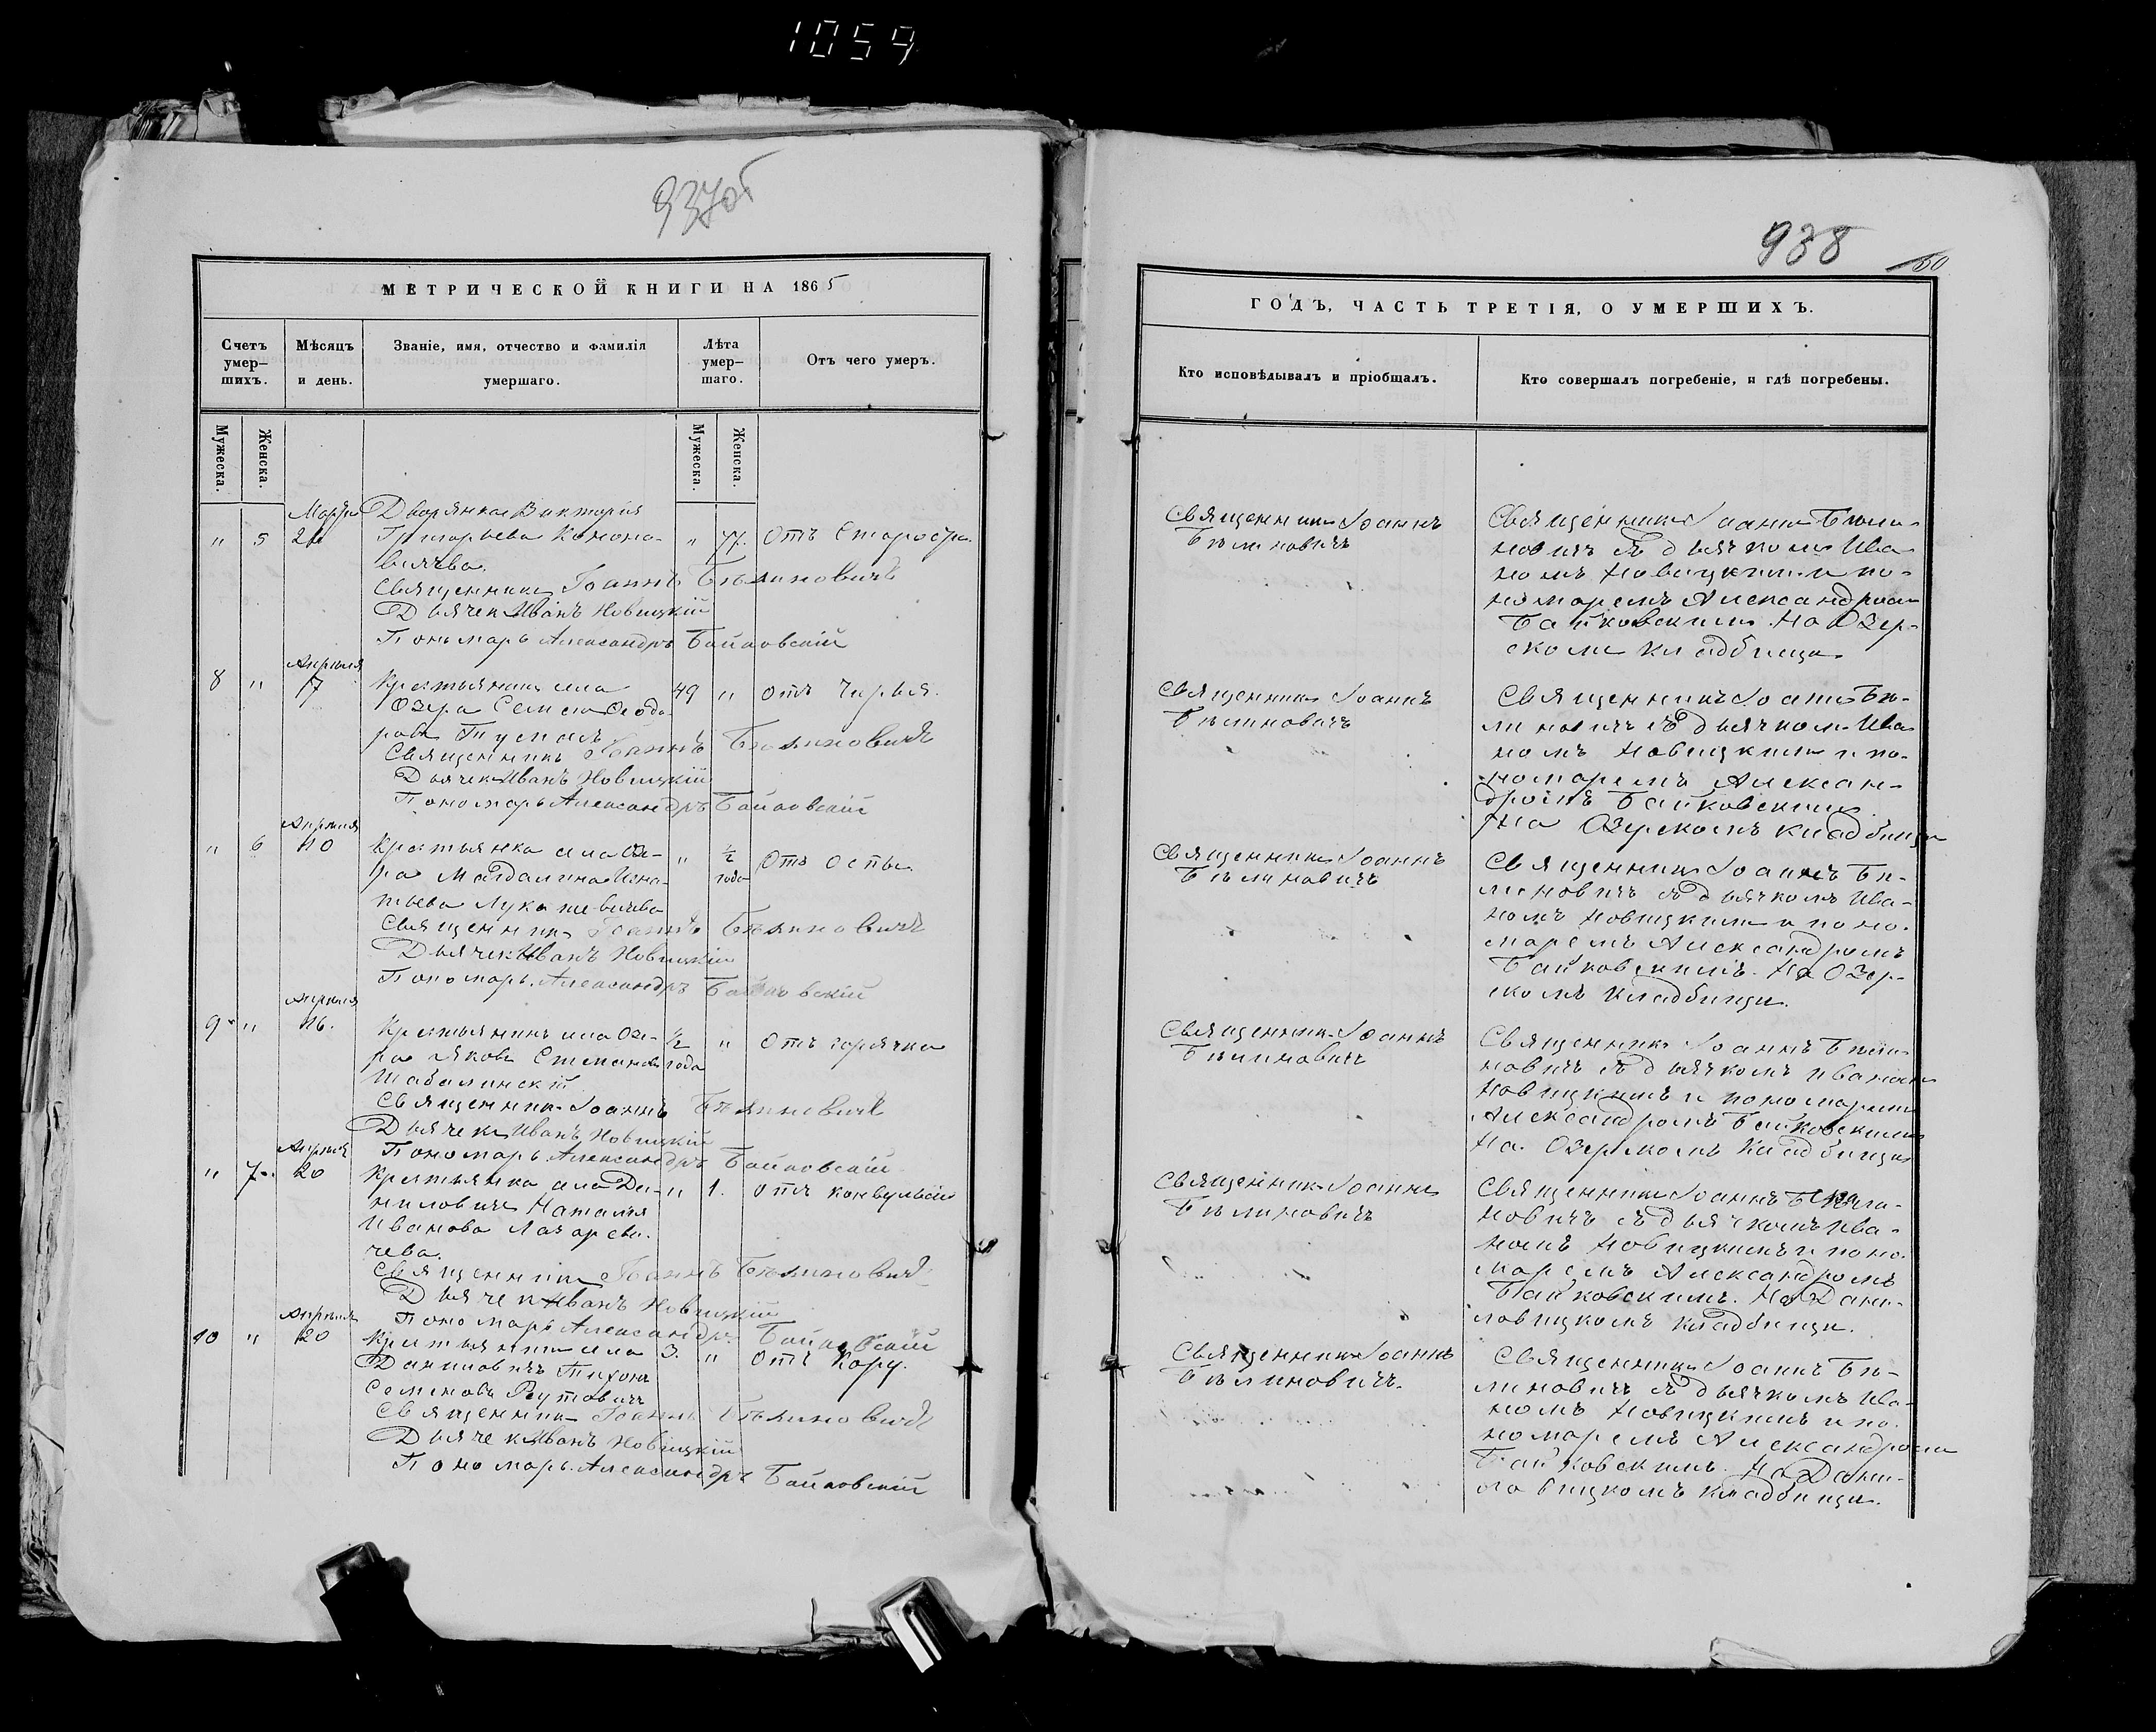 1059
937об
МЕТРИЧЕСКОЙ КНИГИ НА 1865
Счетъ умер–шихъ.
Мѣсяцъ и день.
Званіе, имя, отчество и фамилія умершаго.
Лѣта умер–шаго.
Отъ чего умеръ.
Мужеска.
Женска.
Мужеска.
Женска.
Марта Дворянка Виктория
" 5 Григорьева Конона- " 77. Отъ Старости
вичева.
Священникъ Іоаннъ Бѣлиновичъ
Дьячекъ Иванъ Новицкій
Пономарь Александръ Байковскій
Апрѣля
8 " 7 Крестьянинъ села 49 " отъ Чирья.
Озера Семенъ Феодо-
ровъ
Священникъ Іоаннъ Бѣлиновичъ
Дьячекъ Иванъ Новицкій
Пономарь Александръ Байковскій
Апрѣля
" 6 10 Крестьянка села Озе- " ½ года Отъ Оспы
ра Магдалина Игна-
тьева Лукашевичева
Священникъ Іоаннъ Бѣлиновичъ
Дьячекъ Иванъ Новицкій
Пономарь Александръ Байковскій
Апрѣля
9 " 16. Крестьянинъ села Озе- ½ года " Отъ горячки
ра Яковъ Степановъ
Шабалинскій
Священникъ Іоаннъ Бѣлиновичъ
Дьячекъ Иванъ Новицкій
Пономарь Александръ Байковскій
Апрѣля
" 7. 20 Крестьянка села Да- " 1. отъ конвульсіи
ниловичъ Наталья
Иванова Лазареви-
чева.
Священникъ Іоаннъ Бѣлиновичъ
Дьячекъ Иванъ Новицкій
Пономарь Александръ Байковскій
Апрѣля
10 " 20 Крестьянинъ села 3. " Отъ Кору.
Даниловичъ Тихонъ
Семеновъ Рутовичъ
Священникъ Іоаннъ Бѣлиновичъ
Дьячекъ Иванъ Новицкій
Пономарь Александръ Байковскій
938
60
ГОДЪ, ЧАСТЬ ТРЕТІЯ, О УМЕРШИХЪ.
Кто исповѣдывалъ и пріобщалъ.
Кто совершалъ погребеніе, и гдѣ погребены.
Священникъ Іоаннъ
Бѣлиновичъ
Священникъ Іоаннъ Бѣли-
новичъ съ дьячкомъ Ива-
номъ Новицкимъ и по-
номаремъ Александромъ
Байковскимъ. На Озер-
скомъ кладбищи
Священникъ Іоаннъ
Бѣлиновичъ
Священникъ Іоаннъ Бѣ-
линовичъ съ дьячкомъ Ива-
номъ Новицкимъ и по-
номаремъ Алексан-
дромъ Байковскимъ
На Озерскомъ кладбищи
Священникъ Іоаннъ
Бѣлиновичъ
Священникъ Іоаннъ Бѣ-
линовичъ съ дьячкомъ Ива-
номъ Новицкимъ и поно-
маремъ Александромъ
Байковскимъ. На Озер-
скомъ кладбищи.
Священникъ Іоаннъ
Бѣлиновичъ
Священникъ Іоаннъ Бѣли-
новичъ съ дьячкомъ Иваномъ
Новицкимъ и пономаремъ
Александромъ Байковскимъ
На Озерскомъ кладбищи
Священникъ Іоаннъ
Бѣлиновичъ
Священникъ Іоаннъ Бѣли-
новичъ съ дьячкомъ Ива-
номъ Новицкимъ и поно-
маремъ Александромъ
Байковскимъ. На Дани-
ловицкомъ кладбищи.
Священникъ Іоаннъ
Бѣлиновичъ.
Священникъ Іоаннъ Бѣ-
линовичъ съ дьячкомъ Ива-
номъ Новицкимъ и по-
номаремъ Александромъ
Байковскимъ. На Дани-
ловицкомъ кладбищи.